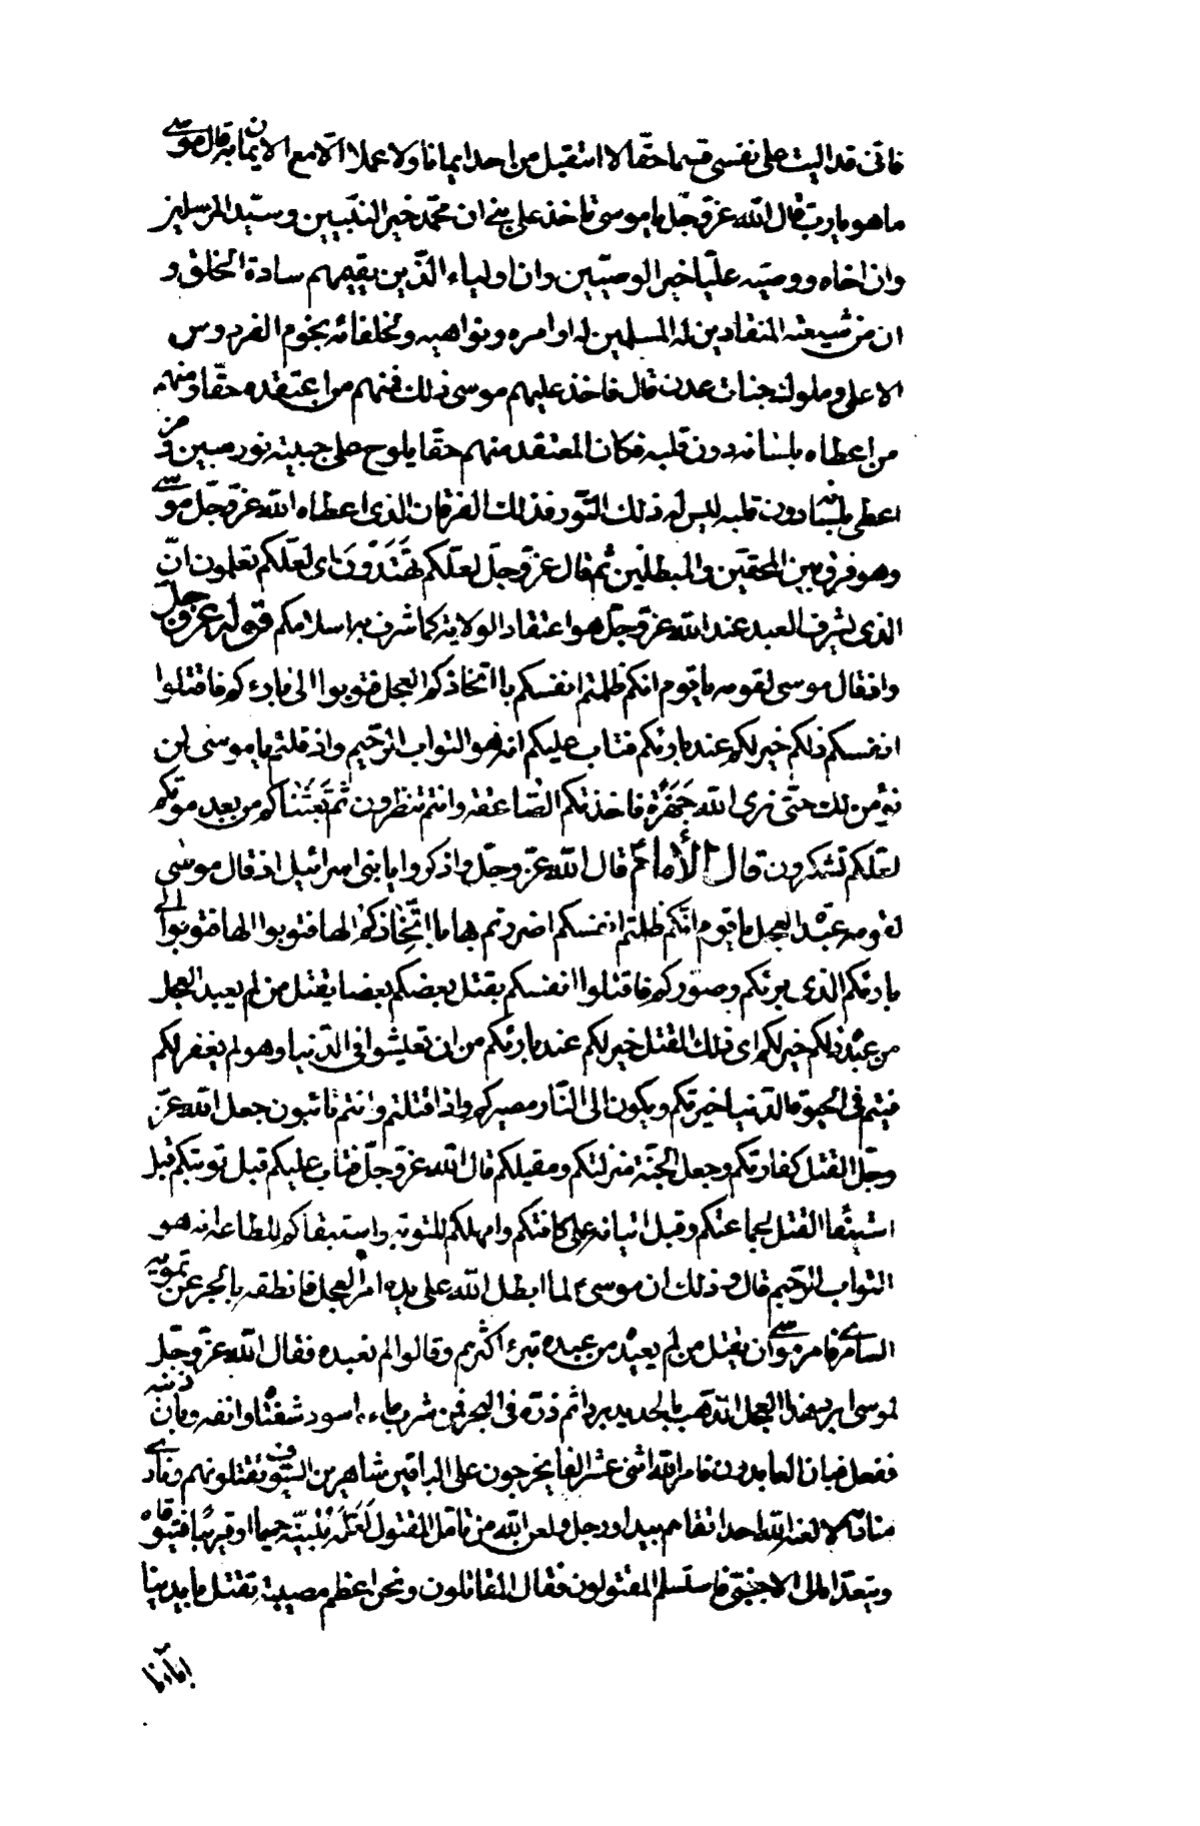 فانى قد اليت على نفسى قسما حقا لا اتقبل من احد ايمانا ولا عملا الا مع الايمان به قال موسى
ما هو يا رب قال الله عز وجل يا موسى تاخذ على بنى ان محمد خير النبيين وسيد المرسلين
وان اخاه ووصيه عليا خير الوصيين وان اولياء الذين يقيمهم سادة الخلق و
ان من شيعته المنقادين له المسلمين له اوامره ونواهيه ولخلفائه نجوم الفردوس
الاعلى وملوك جنات عدن قال فاخذ عليهم موسى ذلك فمنهم من اعتقده حقا ومنهم
من اعطاه بلسانه دون قلبه فكان المعتقد منهم حقا يلوح على جبينه نور مبين ومن
اعطى بلسانه دون قلبه ليس له ذلك النور فذلك الفرقان الذى اعطاه الله عز وجل موسى
وهو فرق بين المحقين والمبطلين ثم قال عز وجل لعلكم تَهتَدُونَ اى لعلكم تعلمون انّ
الذى يشرف العبد عند الله عز وجل هو اعتقاد الولاية كما شرف به اسلافكم قوله عز وجل
واذ قال موسى لقومه يا قوم انكم ظلمتم انفسكم باتخاذكم العجل فتوبوا الى بارئكم فاقتلوا
انفسكم ذلكم خير لكم عند بارئكم فتاب عليكم انه هو التواب الرّحيم واذ قلتم يا موسى لن
نؤمن لك حتّى نرى الله جَهْرَةً فاخذتكم الصّاعقة وانتم تنظرون ثم بَعَثْناكم من بعد موتكم
لعلكم تشكرون قال الأمام ع قال الله عزّ وجلّ واذكروا يا بنى اسرائيل اذ قال موسى
لقومه عبدة العجل يا قوم انّكم ظلمتم انفسكم اضررتم بها باتّخاذكم العجل الها فتوبوا الى
بارئكم الذى برئكم وصوّركم فاقتلوا انفسكم بقتل بعضكم بعضا يقتل من لم يعبد العجل
من عبده ذلكم خير لكم اى ذلك القتل خير لكم عند بارئكم من ان تعيشوا فى الدّنيا وهو لم يغفر لكم
فيتم فى الحيوة الدنيا خيرتكم ويكون الى النّار مصيركم واذا قتلتم وانتم تائبون جعل الله عزّ
وجلّ القتل كفارتكم وجعل الجنّة منزلتكم ومقيلكم قال الله عز وجلّ فتاب عليكم قبل توبتكم قبل
استيفاء القتل لجماعتكم وقبل اتيانه على كافتكم وامهلكم للتوبة واستبقاكم للطاعة انه هو
التواب الرّحيم قال وذلك ان موسى ع لما ابطل الله على يده امر العجل فانطقه بالخبر عن تمويه
السامرى فامر موسى ان يقتل من لم يعبده من عبده تبرء اكثرهم وقالوا لم نعبده فقال الله عزّ وجلّ
لموسى ابرد هذا العجل الذهب بالحديد بردا ثم ذرّه فى البحر فمن شرب ماءه اسود شفتاه وانفه وبان ذنبه
ففعل فبان العابدون فامر الله اثنى عشر الفا يخرجون على الباقين شاهرين السيوف يقتلونهم ونادى
مناد الا لعن الله احدا اتقاهم بيد او رجل ولعن الله من تامّل المقتول لعله يتبيّنه حميما او قريبا فيتوقاه
ويتعدّاه الى الاجنبى فاستسلم المقتولون فقال القاتلون ونحن اعظم مصيبة نقتل بايدينا
اباءنا